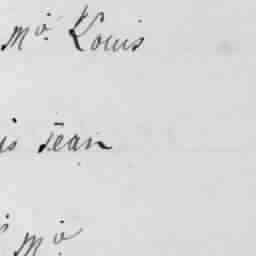 mº Louis
is jean
mº